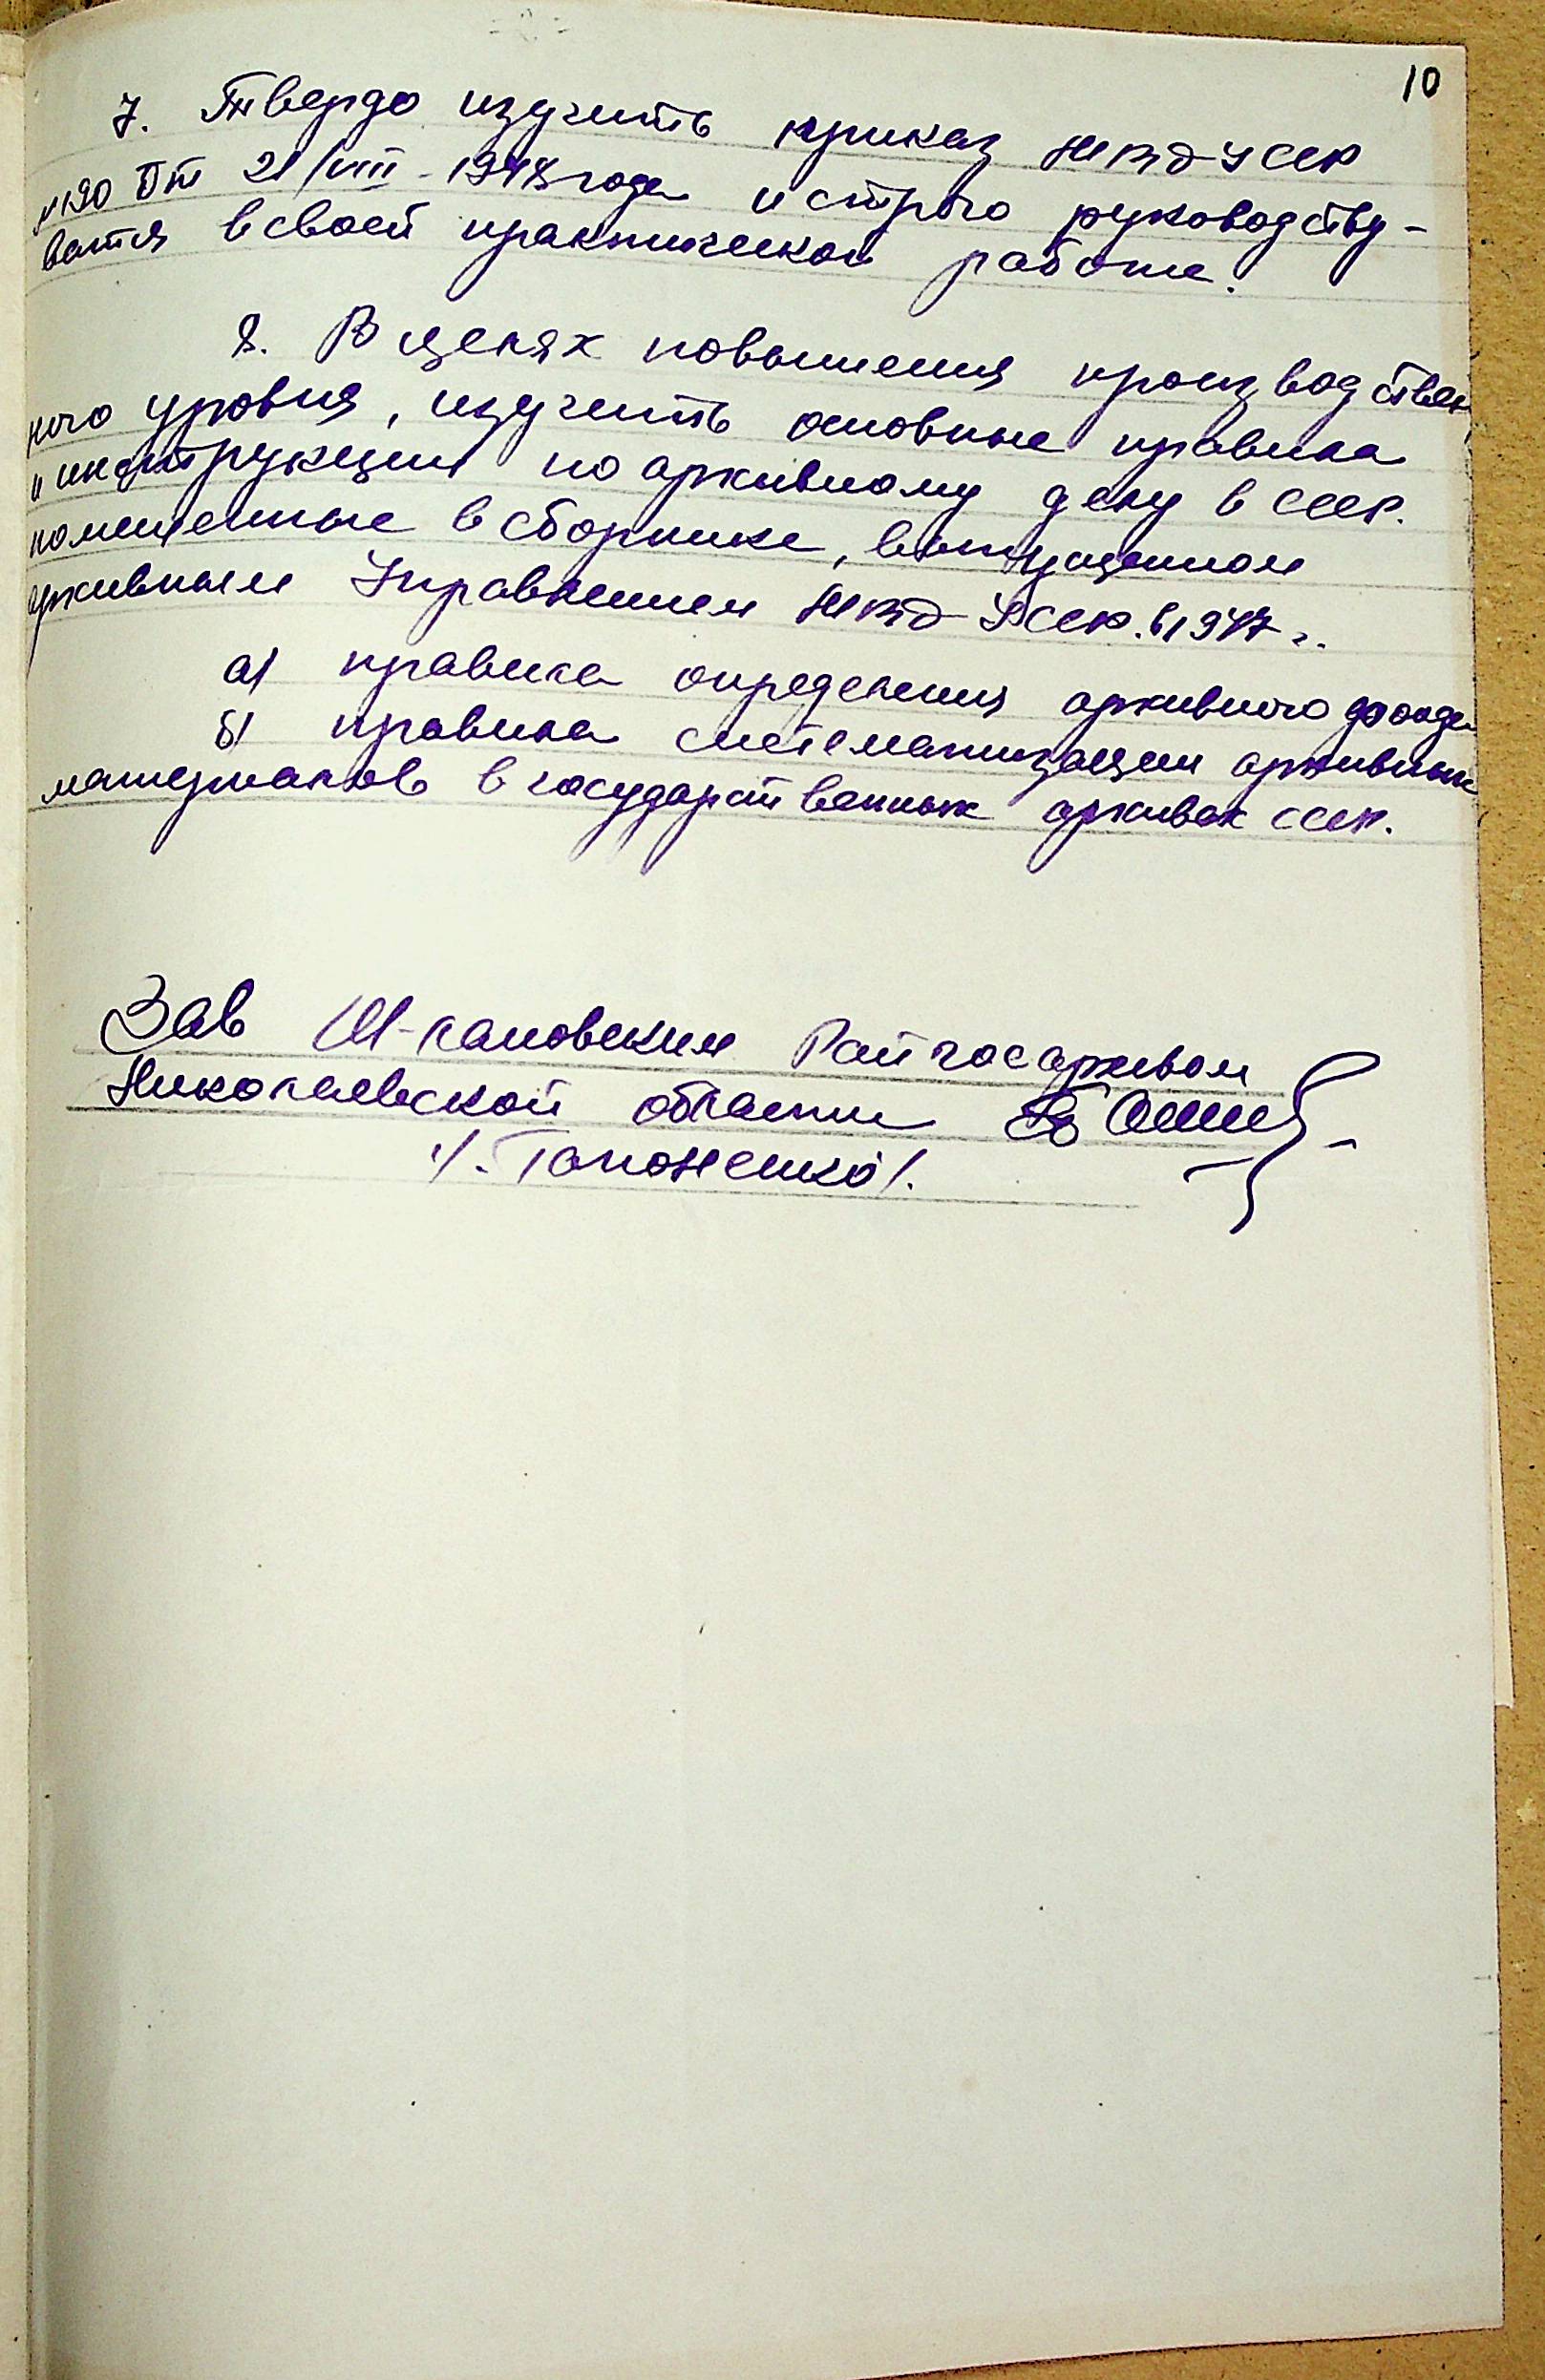 10
7. Твердо изучить приказ МВД УССР
№190 От 21/VIII - 1948 года и строго руководству-
ватся в своей практической работе.
8. В целях повышения производствен
ного уровня, изучить основные правила
и инструкции по архивному делу в СССР.
помещенные в сборнике, выпущенном
архивным Управлением МВД УССР. в 1947 г.
а) правила определения архивного фонда
б) правила систематизации архивных
материалов в государственных архивах СССР.
Зав Райгосархивом
Николаевской области
/. Гапоненко /.